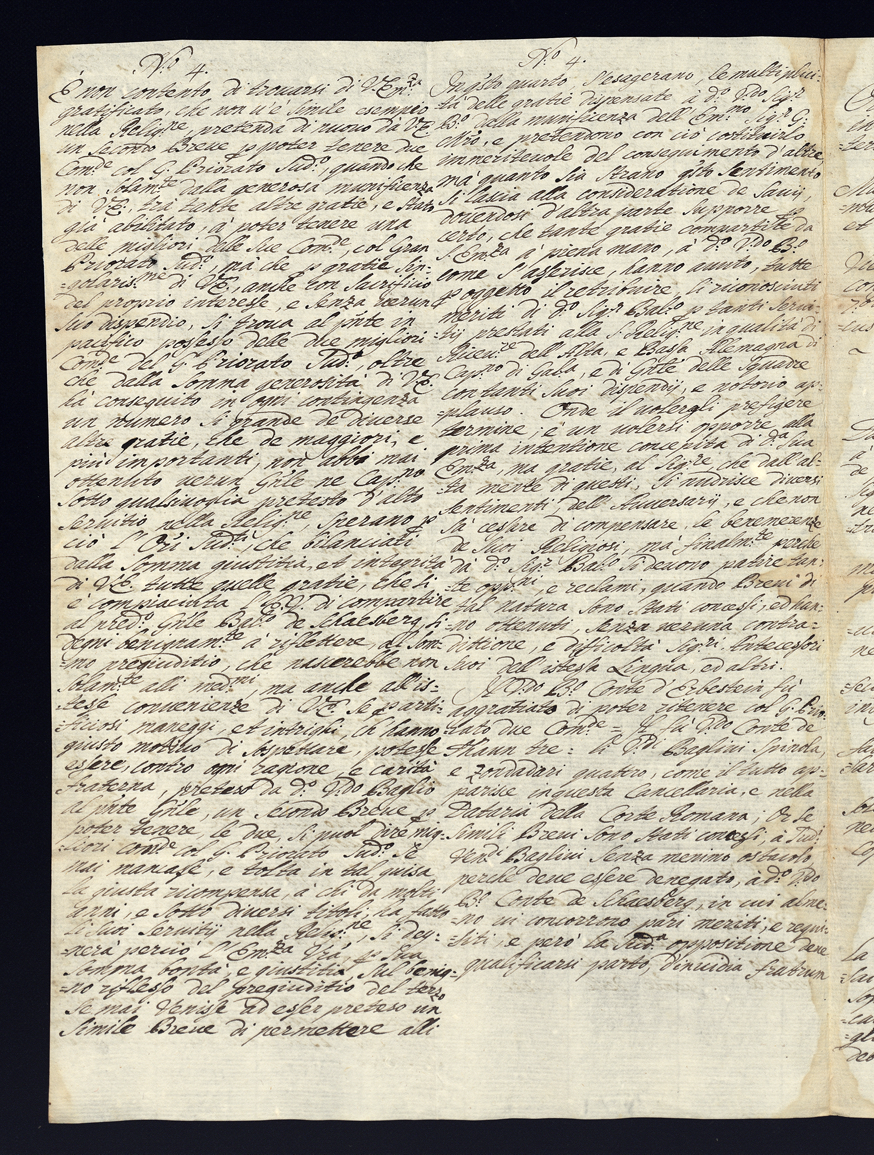 N.º 4.
È non contento di trouarsi di V. Em.za
gratificato, che non u'è simile esempio
nella Relig.ne, pretenda di nuouo da V.E.
un secondo Breue p poter tenere due
Com.de col G. Priorato Sud.º, quando che
non solam.te dalla generosa munificienza
di V.E. trà tante altre gratie, e stato
già abilitato, à poter tenere una
delle migliori delle sue Com.de, col Gran
Priorato sud.º, mà che p gratie sin-
=golariss.me di V.E., anche con sacrificio
del proprio interesse, e senza uerun
suo dispendio, si troua al pnte in
pacifico possesso delle due migliori
Com.de del G. Priorato Sud.º, oltre
che dalla somma generosità di V.E.
hà conseguito in ogni contingenza
un numero si grande de diuerse
altre gratie, che de maggiori, e
più importanti, non abbi mai
ottenuto uerun Gñle ne Cap.no
sotto qualsiuoglia pretesto d'alto
seruitio nella Relig.ne, sperano p
ciò l'Ori Sud.ti, che bilanciati
dalla somma giustitia, et integrità
di V.E. tutte quelle gratie, che si
è compiaciuta l'E.V. di compartire
al pred.º Gñle Bal.º de Schaesberg, si
degni benignam.te à riflettere, al som-
=mo pregiuditio, che nascerebbe non
solam.te alli med.mi, ma anche all'is-
=tese conuenienze di V.E. se p arti-
=ficiosi maneggi, et intrighi, ch hanno
giusto motiuo di sospettare, potesse
essere, contro ogni ragione e carità
fraterna, preteso da d.º V.do Baglio
al pnte Gñle, un secondo Breue p
poter tenere, le due, si puol dire, mig-
=liori Com.de col G. Priorato Sud.º Se
mai mancasse, e tolta in tal guisa
la giusta ricompensa, à chi da molti
anni, e sotto diuersi titoli, ha fatto
li suoi seruitij nella Relig.ne, si deg-
nerà perciò l'Em.za V.ra p sua
somma bontà, e giustitia, sul benig-
=no riflesso del pregiuditio del terzo
se mai Venisse ad esser preteso un
simile Breue di permettere alli
N.º 4.
In q.sto quarto s'esagerano, le multiplici-
tà delle gratie dispensate à d.º V.do Sig.r
B.º della munificenza dell'Em.mo Sig.r G.
M.ro, e pretendono con ciò costituirlo
immeriteuole del conseguimento d'altre
mà quanto sia strano q.sto sentimento
si lascia alla consideratione de Sauij,
douendosi d'altra parte supporre p
certo, che tante gratie compartite da
S. Em.za à piena mano, à d.º V.do B.º
come s'asserisce, hanno auuto, tutte
p oggetto il retribuire, li riconosciuti
meriti di d.º Sig.r Bal.º p tanti serui-
tij prestati alla S. Relig.ne in qualità di
Riceu.re dell'Alta, e Bassa Allemagna di
Cap.no di Galã, e di Gñle delle Squadre
con tanti suoi dispendij, e notorio ap-
=plauso. Onde il uolergli prefigere
termine, è un uolersi opporre alla
prima intentione concepita di d.ta sua
Em.za, ma gratie, al Sig.re, che dall'al-
=ta mente di questi, si nudrisce diuersi
sentimenti dell'Auuersarij, e che non
sà cessare di compensare, le benemerenze
de suoi Religiosi, mà finalm.te perche
da d.º Sig.r Bal.º si deuono patire tan-
=te opp.ni, e reclami, quando Breui di
tal natura, sono stati concessi, ed han-
=no ottenuti, senza ueruna contra-
dittione, e difficoltà Sig.ri Antecessori
suoi dell'istessa Lingua, ed altri.
Il V.do B.º Conte d'Erbestein fù
aggratiato di poter ritenere col G. Prio-
rato due Com.de = Il fù V.do Conte de
Thaun tre = li V.di Baglini Spinola
e Zondadari quattro, come il tutto ap-
=parisce in questa Cancelaria, e nella
Dataria della Corte Romana; Or se
simili Breui sono stati concessi, à Sud.i
Ven.di Baglini senza menimo ostacolo
perche deue essere denegato, à d.º V.do
B.º Conte de Schaesberg, in cui alme-
=no ui concorrono pari meriti, e requi-
=siti, e però la Sud.a oppositione deue
qualificarsi parto, d'inuidia fratrum